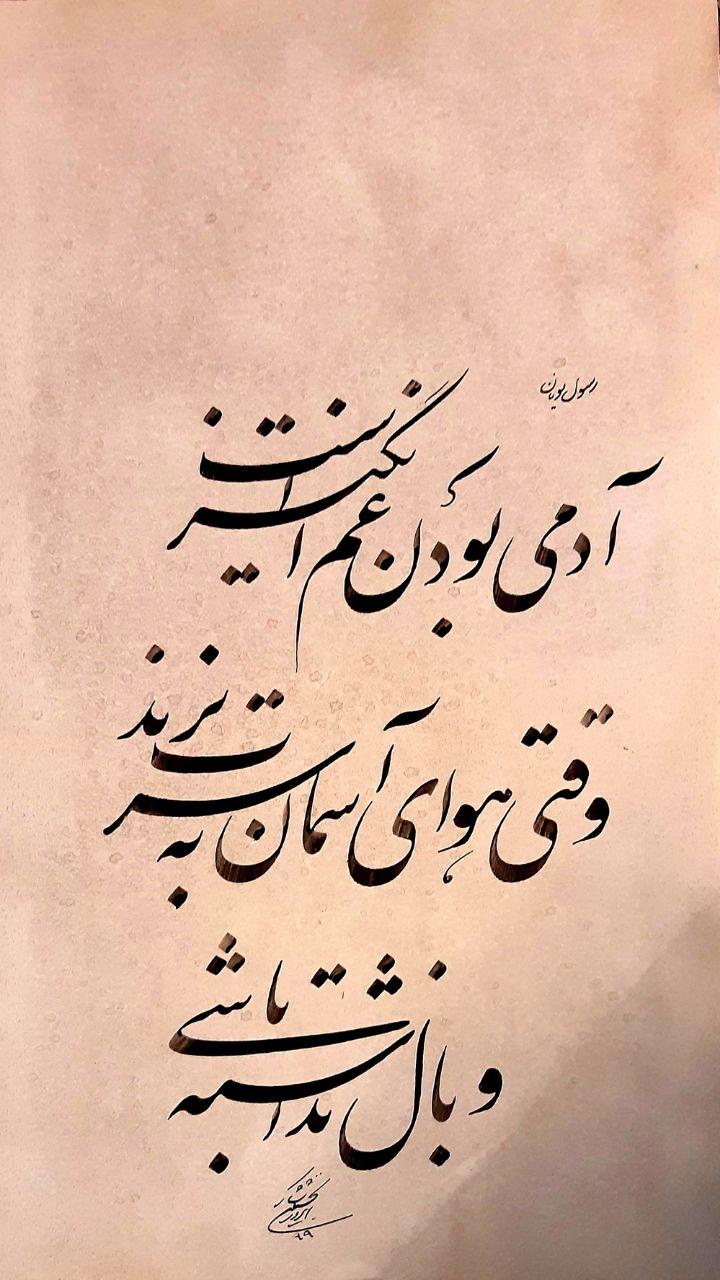 رسول یونان
آدمی بودن غم انگیز است
وقتی هوای آسمان به سرت بزند
و بال نداشته باشی